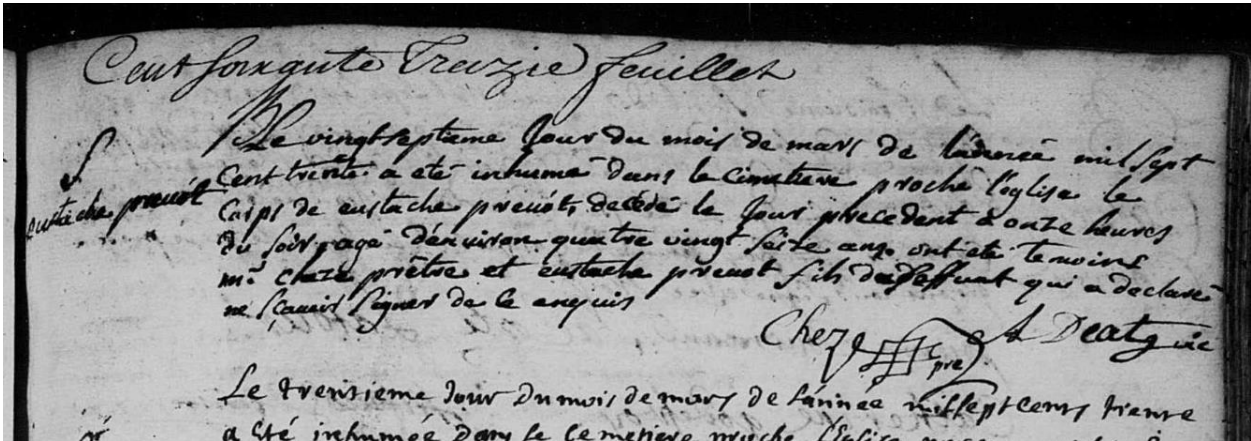 Cent soixante Treizie feuillet
Le vingt septieme Jour du mois de mars de lannée mil sept
eustache prevôt
Cent trente a eté inhumé dans le Cimetiere proche l'église le
Corps de eustache prevôt, decédé le Jour precedent à onze heures
du soir agé d'environ quatre vingt seize ans. ont eté temoins
mr. cheze prêtre et eustache prevot fils du deffunt qui a declaré
ne sçavoir signer de ce enquis
Cheze pre
Le trentieme Jour du mois de mars de lannee mil sept cens trente
a été inhumée dans le cemetiere proche l'Eglise